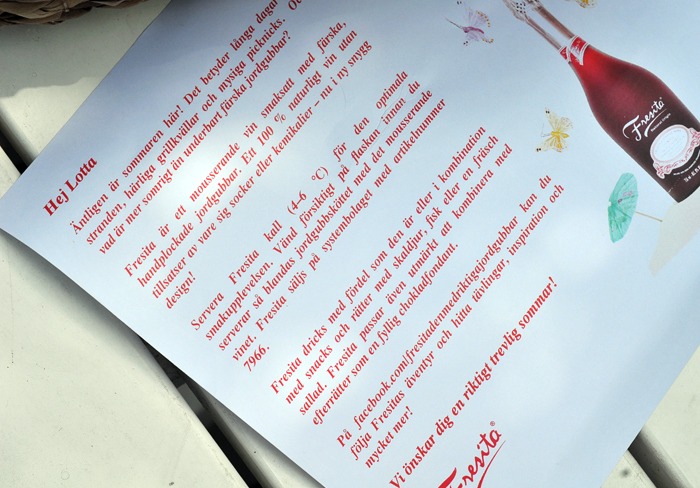 Hej Lotta
Äntligen är sommaren här! Det betyder långa dagar
stranden, härliga grillkvällar och mysiga picknicks. Oc
vad är mer somrigt än underbart färska jordgubbar?
Fresita är ett mousserande vin smaksatt med färska,
handplockade jordgubbar. Ett 100 % naturligt vin utan
tillsatser av vare sig socker eller kemikalier – nu i ny snygg
design!
Servera Fresita kall (4–6 °C) för den optimala
smakupplevelsen. Vänd försiktigt på flaskan innan du
serverar så blandas jordgubbsköttet med det mousserande
vinet. Fresita säljs på systembolaget med artikelnummer
7966.
Fresita dricks med fördel som den är eller i kombination
med snacks och rätter med skaldjur, fisk eller en fräsch
sallad. Fresita passar även utmärkt att kombinera med
efterrätter som en fyllig chokladfondant.
På facebook.com/fresitadenmedriktigajordgubbar kan du
följa Fresitas äventyr och hitta tävlingar, inspiration och
mycket mer!
Vi önskar dig en riktigt trevlig sommar!
Fresita®
Fresita